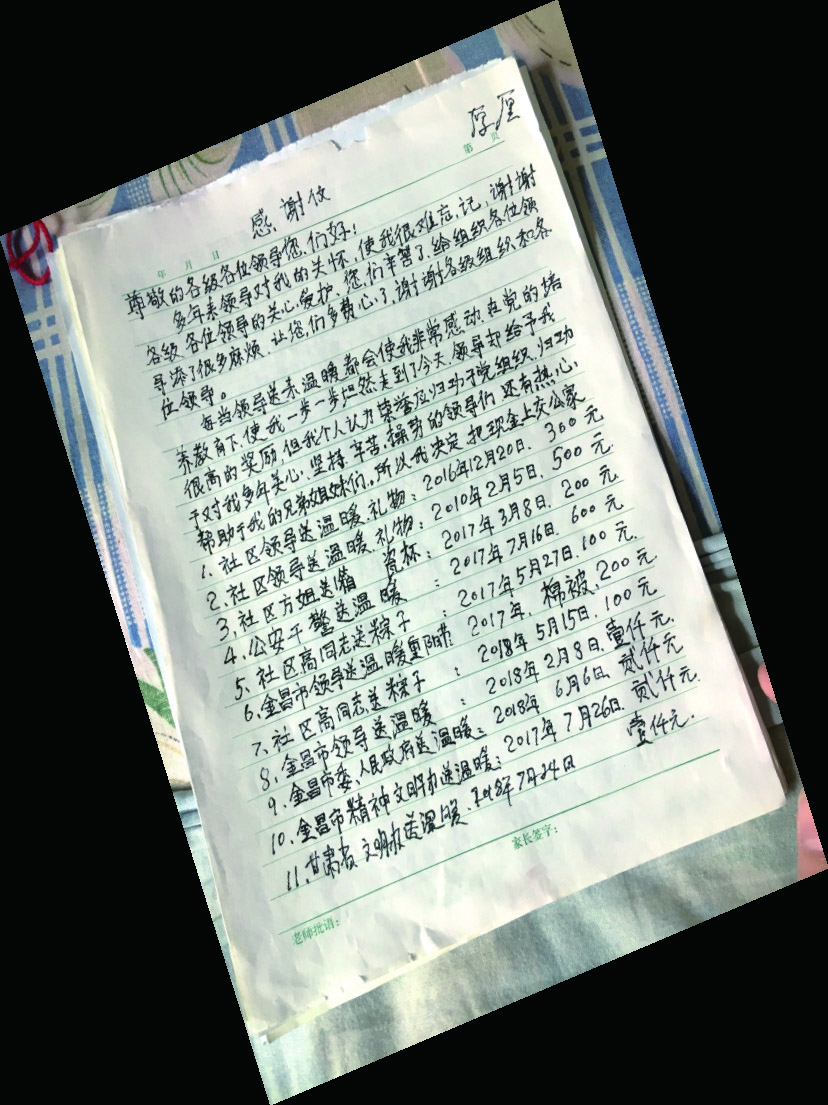 存底
第 页
感谢信
年 月 日
尊敬的各级各位领导您们好！
多年来领导对我的关怀，使我很难忘记，谢谢
各级各位领导的关心爱护、您们辛苦了，给组织各位领
导添了很多麻烦、让您们多费心了，谢谢各级组织和各
位领导。
每当领导送来温暖都会使我非常感动，在党的培
养教育下，使我一步一步坦然走到了今天，领导却给予我
很高的奖励，但我个人认为荣誉应归功于党组织，归功
于对我多年关心，坚持，辛苦，操劳的领导们，还有热心
帮助于我的兄弟姐妹们，所以我决定把现金上交公家
1、社区领导送温暖、礼物：2016年12月20日、300元
2、社区领导送温暖、礼物：2010年2月5日、500元
3、社区方姐送箱 瓷杯：2017年3月8日、200元
4、公安干警送温暖：2017年7月16日、600元
5、社区高同志送粽子：2017年5月27日、100元
6、金昌市领导送温暖重阳节 2017年、棉被、200元
7、社区高同志送粽子：2018年5月15日、100元
8、金昌市领导送温暖：2018年2月8日、壹仟元
9、金昌市委、人民政府送温暖：2018年6月6日、贰仟元
10、金昌市精神文明办送温暖：2017年7月26日、贰仟元
11、甘肃省文明办送温暖、2018年7月24日 壹仟元
家长签字：
老师批语：